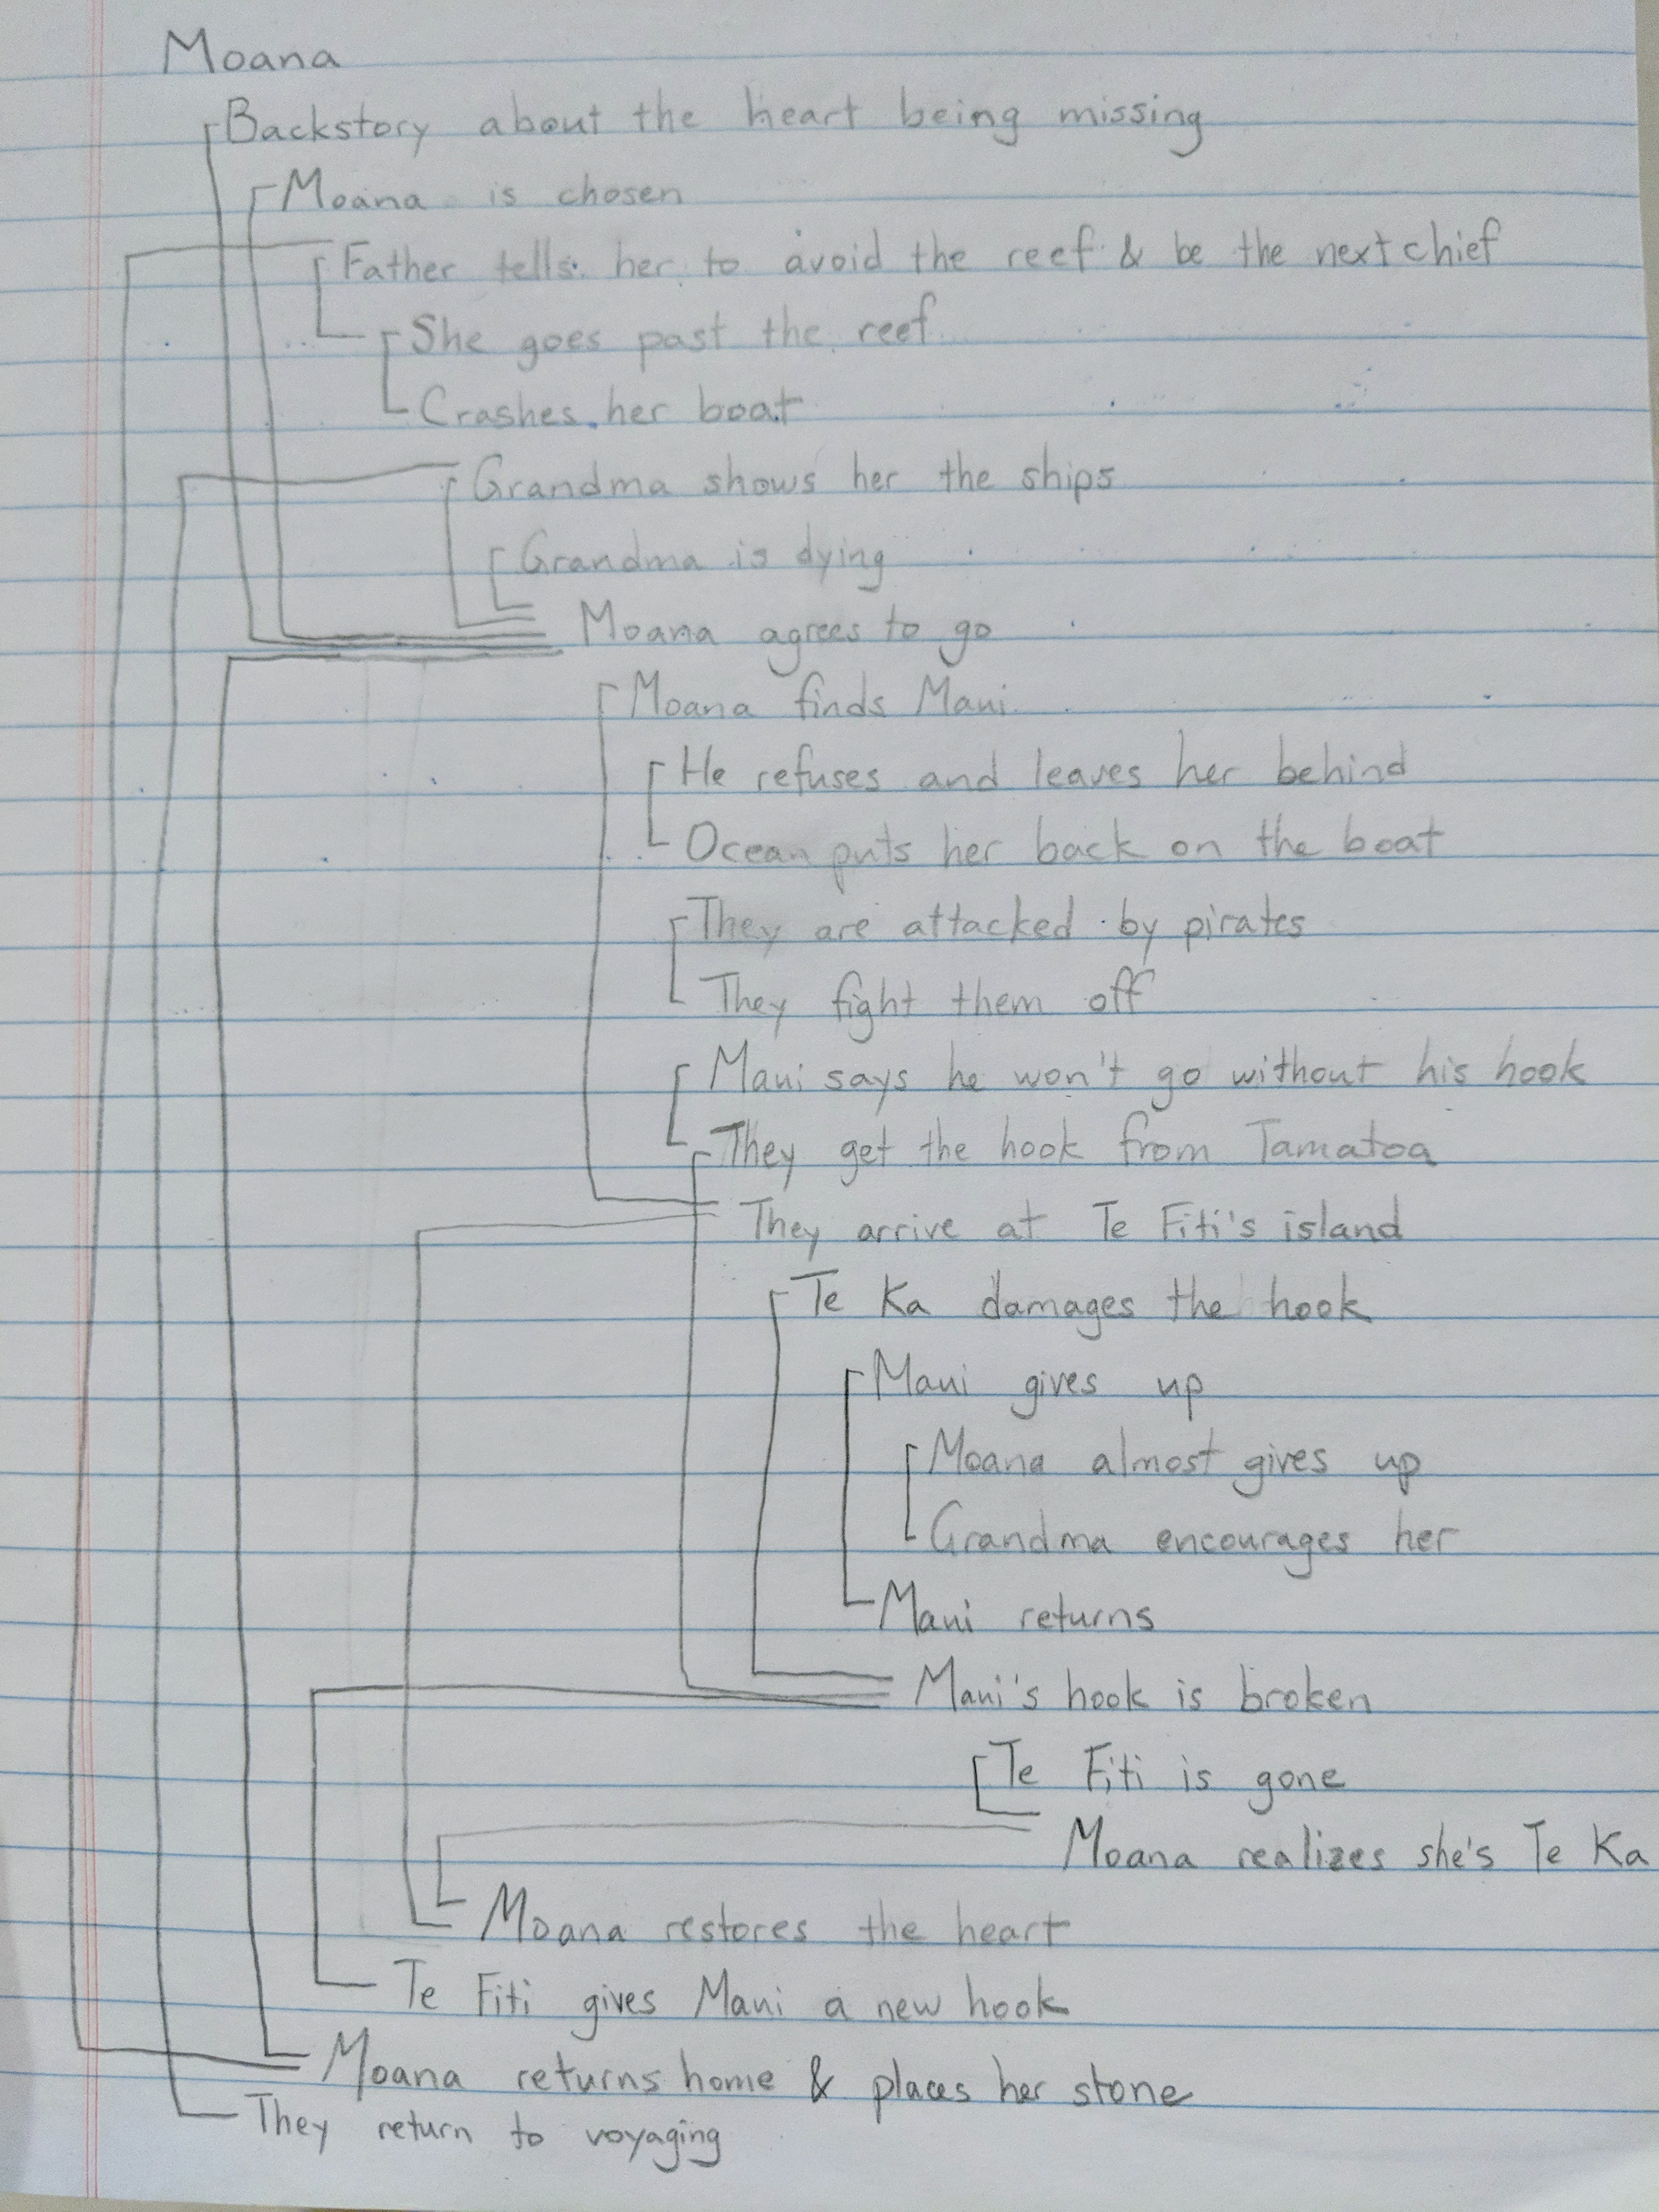 Moana
Backstory about the heart being missing
Moana is chosen
Father tells her to avoid the reef & be the next chief
She goes past the reef
Crashes her boat
Grandma shows her the ships
Grandma is dying
Moana agrees to go
Moana finds Maui
He refuses and leaves her behind
Ocean puts her back on the boat
They are attacked by pirates
They fight them off
Maui says he won't go without his hook
They get the hook from Tamatoa
They arrive at Te Fiti's island
Te Ka damages the hook
Maui gives up
Moana almost gives up
Grandma encourages her
Maui returns
Maui's hook is broken
Te Fiti is gone
Moana realizes she's Te Ka
Moana restores the heart
Te Fiti gives Maui a new hook
Moana returns home & places her stone
They return to voyaging